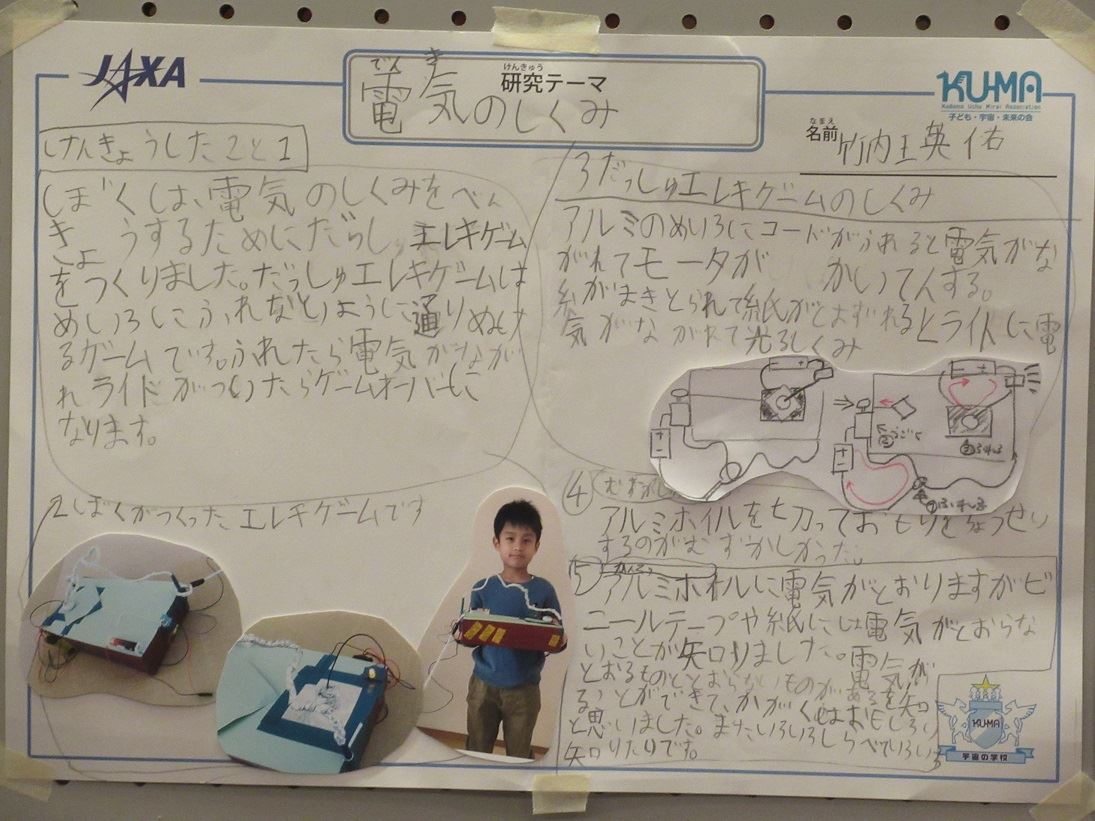 JAXA
けんきゅう
研究テーマ
でんき
電気のしくみ
KU-MA
Kodomo Uchu Mirai Association
子ども・宇宙・未来の会
なまえ
名前
けんきょうしたこと1
しぼくは、電気のしくみをべん
きょうするためにだっしゅエレキゲーム
をつくりました。だっしゅエレキゲームは
めいろにふれないように通りぬけ
るゲームです。ふれたら電気がなが
れライトがついたらゲームオーバーに
なります。
2ぼくがつくったエレキゲームです
3だっしゅエレキゲームのしくみ
アルミのめいろにコードがふれると電気がな
がれてモータが かいてんする。
糸がまきとられて紙がはずれるとライトに電
気がながれて光るしくみ
+ -
+ -
②うごく
①ふれる
④
アルミホイルを切っておもりをちょうせい
するのがむずかしかった。
⑤
アルミホイルに電気がとおりますがビ
ニールテープや紙には電気がとおらな
いことが知りました。電気が
とおるものととおらないものがあるを知
ることができて、かがくはおもしろい
と思いました。またいろいろしらべていろいろ
知りたいです。
KUMA
宇宙の学校